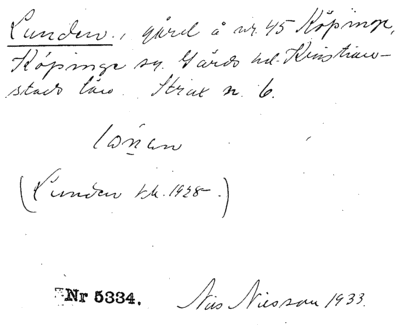 Lunden., gård å nr. 45 Köpinge,
Köpinge sn. Gärds hd. Kristian-
stads län. Strax n. 6.
(Lunden t.k. 1928.)
Nr 5334. Nils Nilsson 1933.